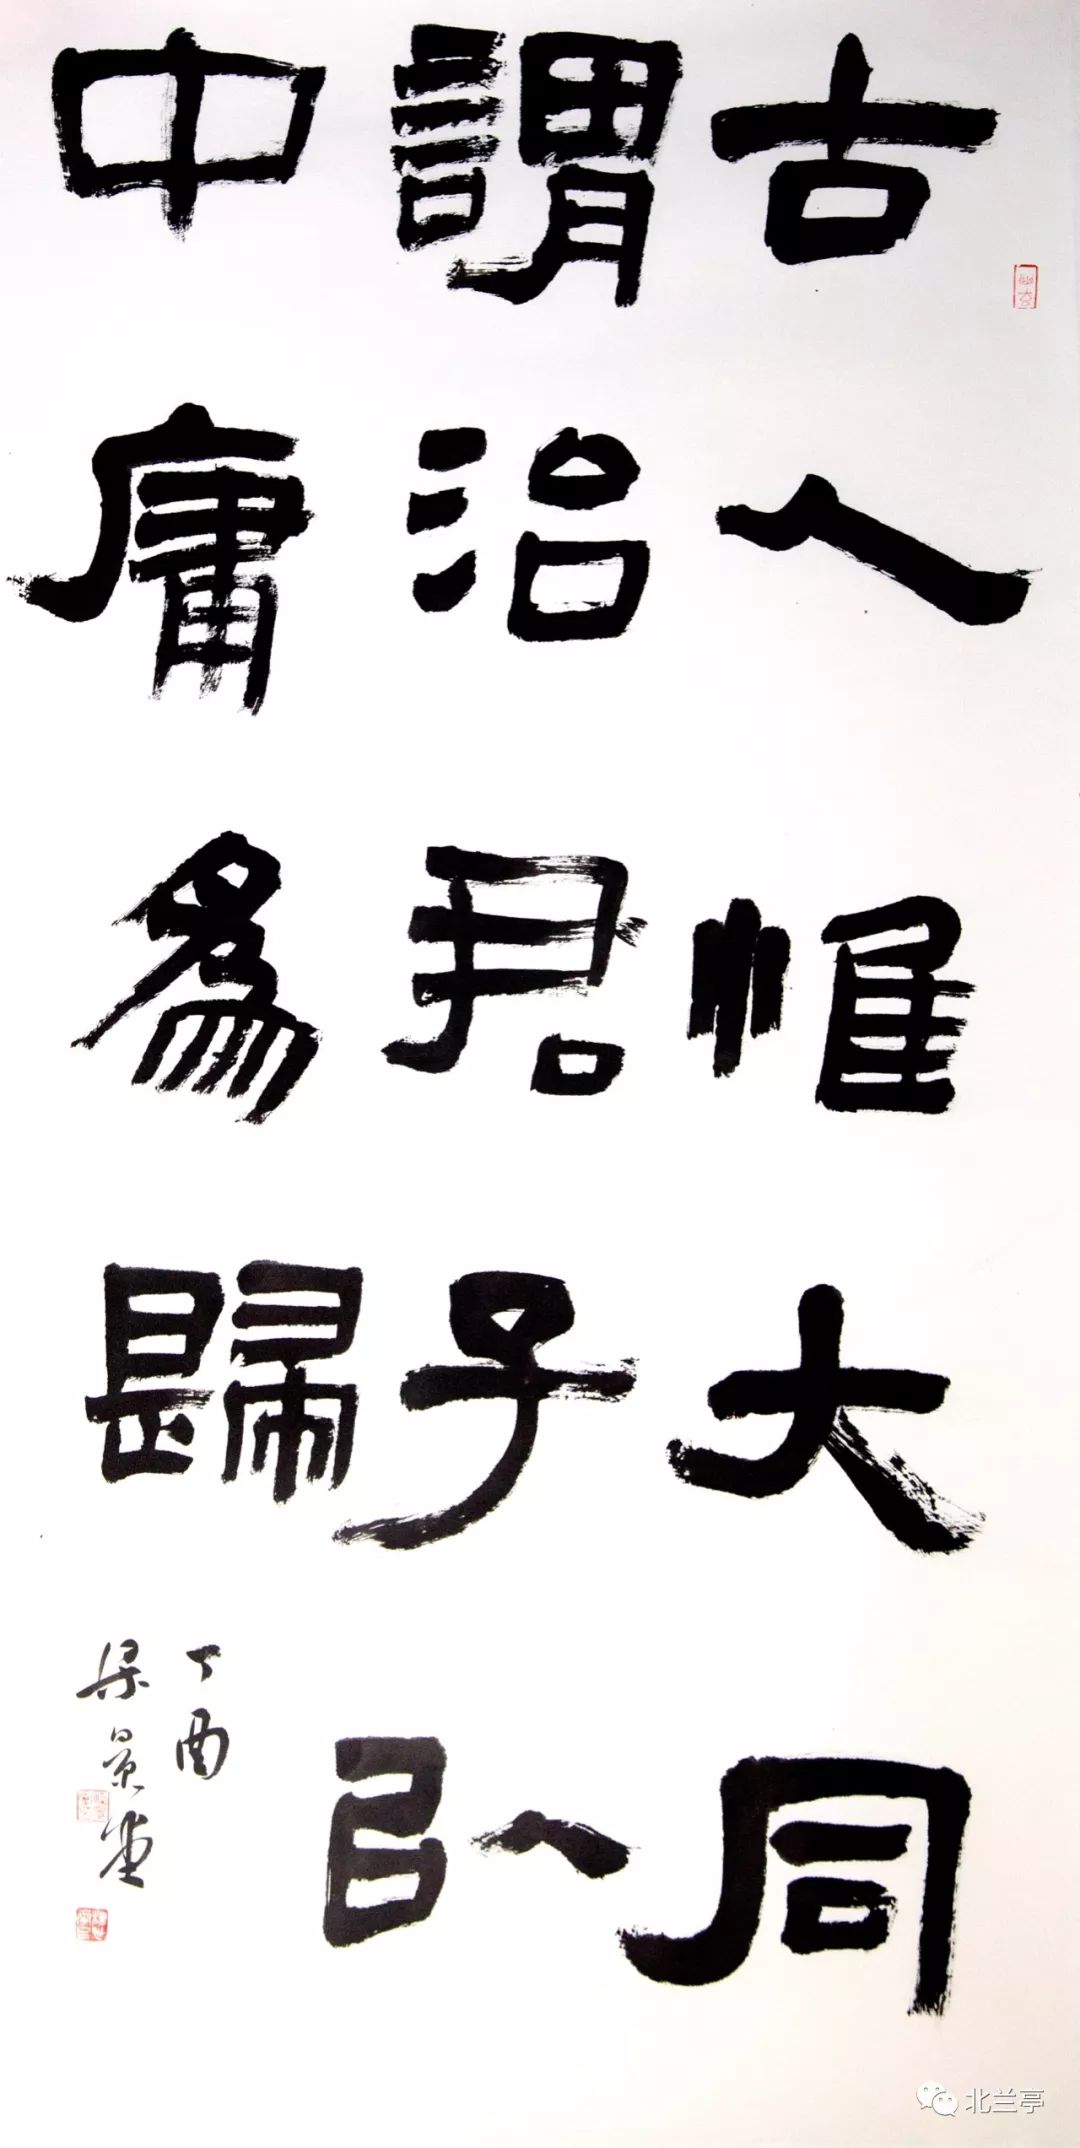 古人惟大同
謂治君子以
中庸為歸
丁酉
梁景堂
北兰亭